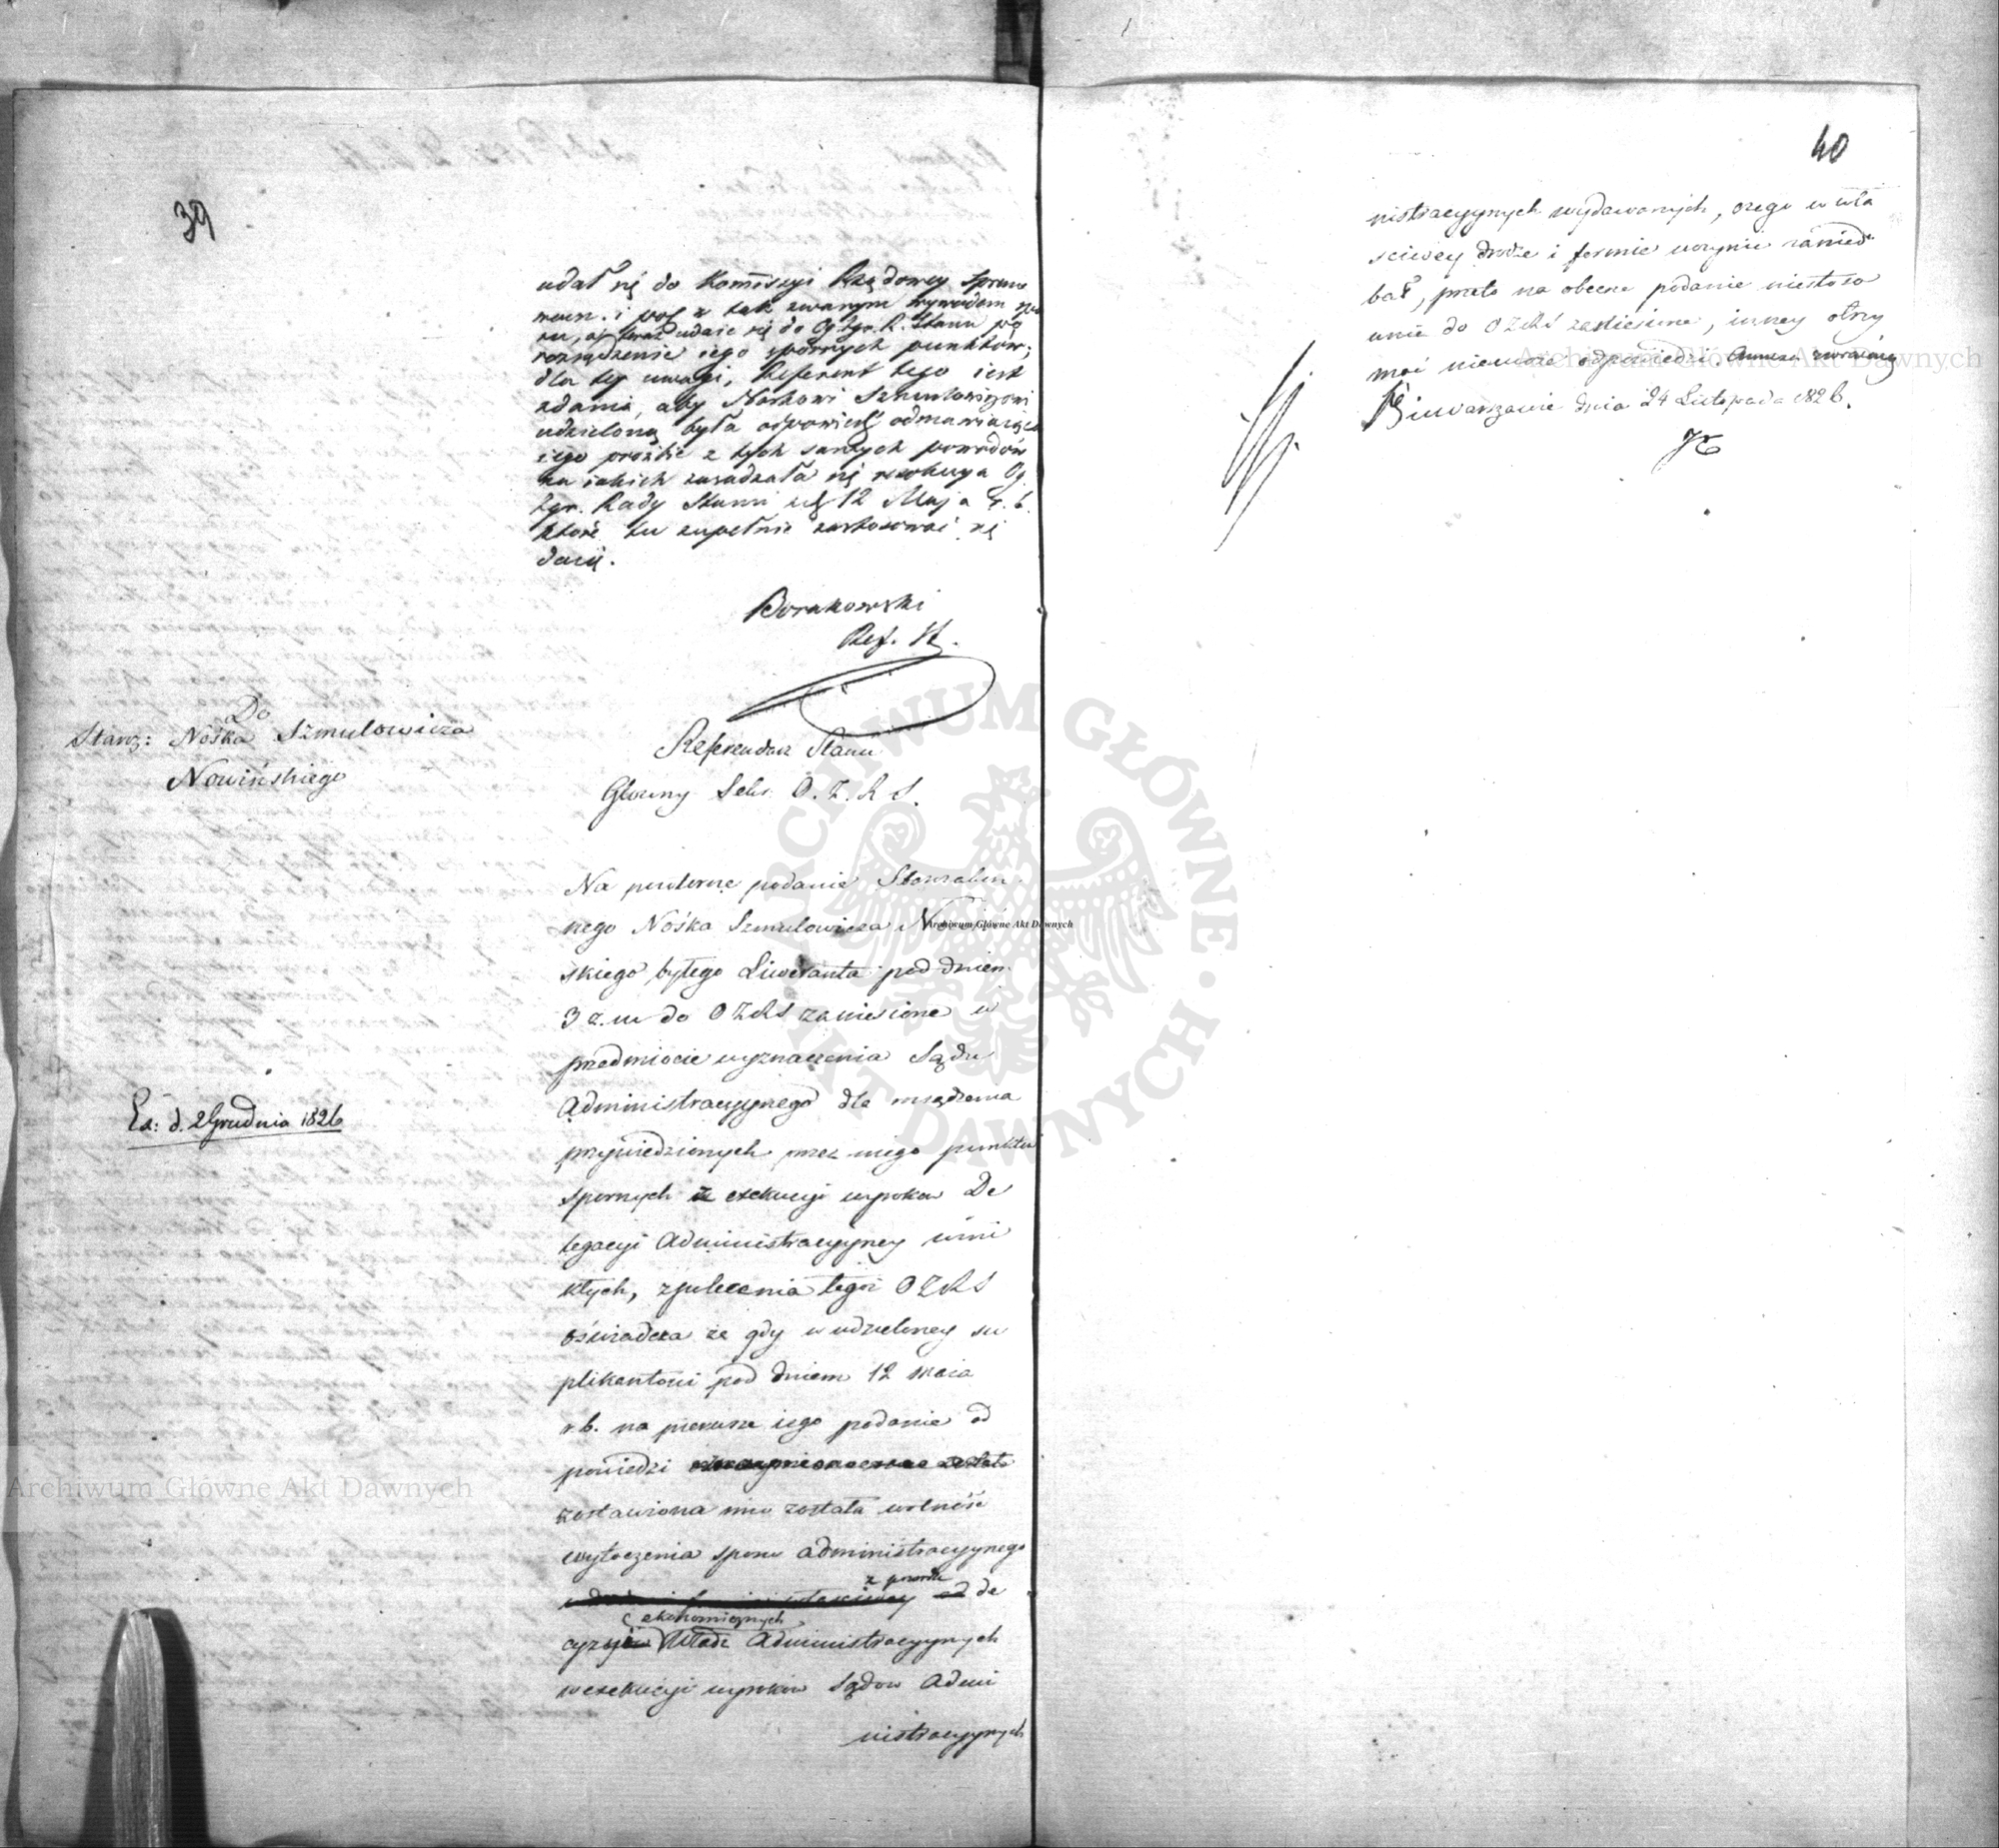 39
udał się do Komissyi Rządowey Spraw
rozrządzenie iego spornych punktów;
dla tey uwagi, Referent tego iest
zdania, aby Noskowi Szmulowiczowi
udzieloną była odpowiedź odmawiaiąca
iego prośbie z tych samych powodów
na iakich zasadzała się rezolucya Og.
Zgr. Rady Stanu z d. 12 Maja r. b.
które tu zupełnie zastosować się
daią.
Borakowski
Ref. St.
Do
Starz: Nośka Szmulowicza
Nowińskiego
Referendarz Stanu
Główny Sekr. O. Z. R. S.
Na powtórne podanie Starozakon
nego Nośka Szmulowicza Nowiń
skiego byłego Liweranta pod dniem
3 z. m do OZRS zaniesione w
przedmiocie wyznaczenia Sądu
Administracyynego dla rozsądzenia
przywiedzionych przez niego punktów
spornych z exekucyi wyroków De
legacyi Administracyyney wyni
kłych, z polecenia tegoż OZRS
oświadcza że gdy w udzieloney su
plikantowi pod dniem 12 maia
r.b. na pierwsze iego podanie od
powiedzi
zostawiona mu została wolność
wytoczenia sporu administracyynego
z powodu
de
ekonomicznych
cyzyi Władz Administracyynych
w exekucyi wyroków Sądów Admi
nistracyynych
Ex: d. 2 Grudnia 1826
40
nistracyynych wydawanych, czego w wła
sciwey drodze i formie uczynić zanied
bał, przeto na obecne podanie niestoso
wnie do OZRS zaniesione, inney otrzy
mać niemoże odpowiedzi. Annexa zwracaią
się w Warszawie dnia 24 Listopada 1826.
ARCHIWUM GŁÓWNE AKT DAWNYCH
Archiwum Główne Akt Dawnych
Archiwum Główne Akt Dawnych
Archiwum Główne Akt Dawnych